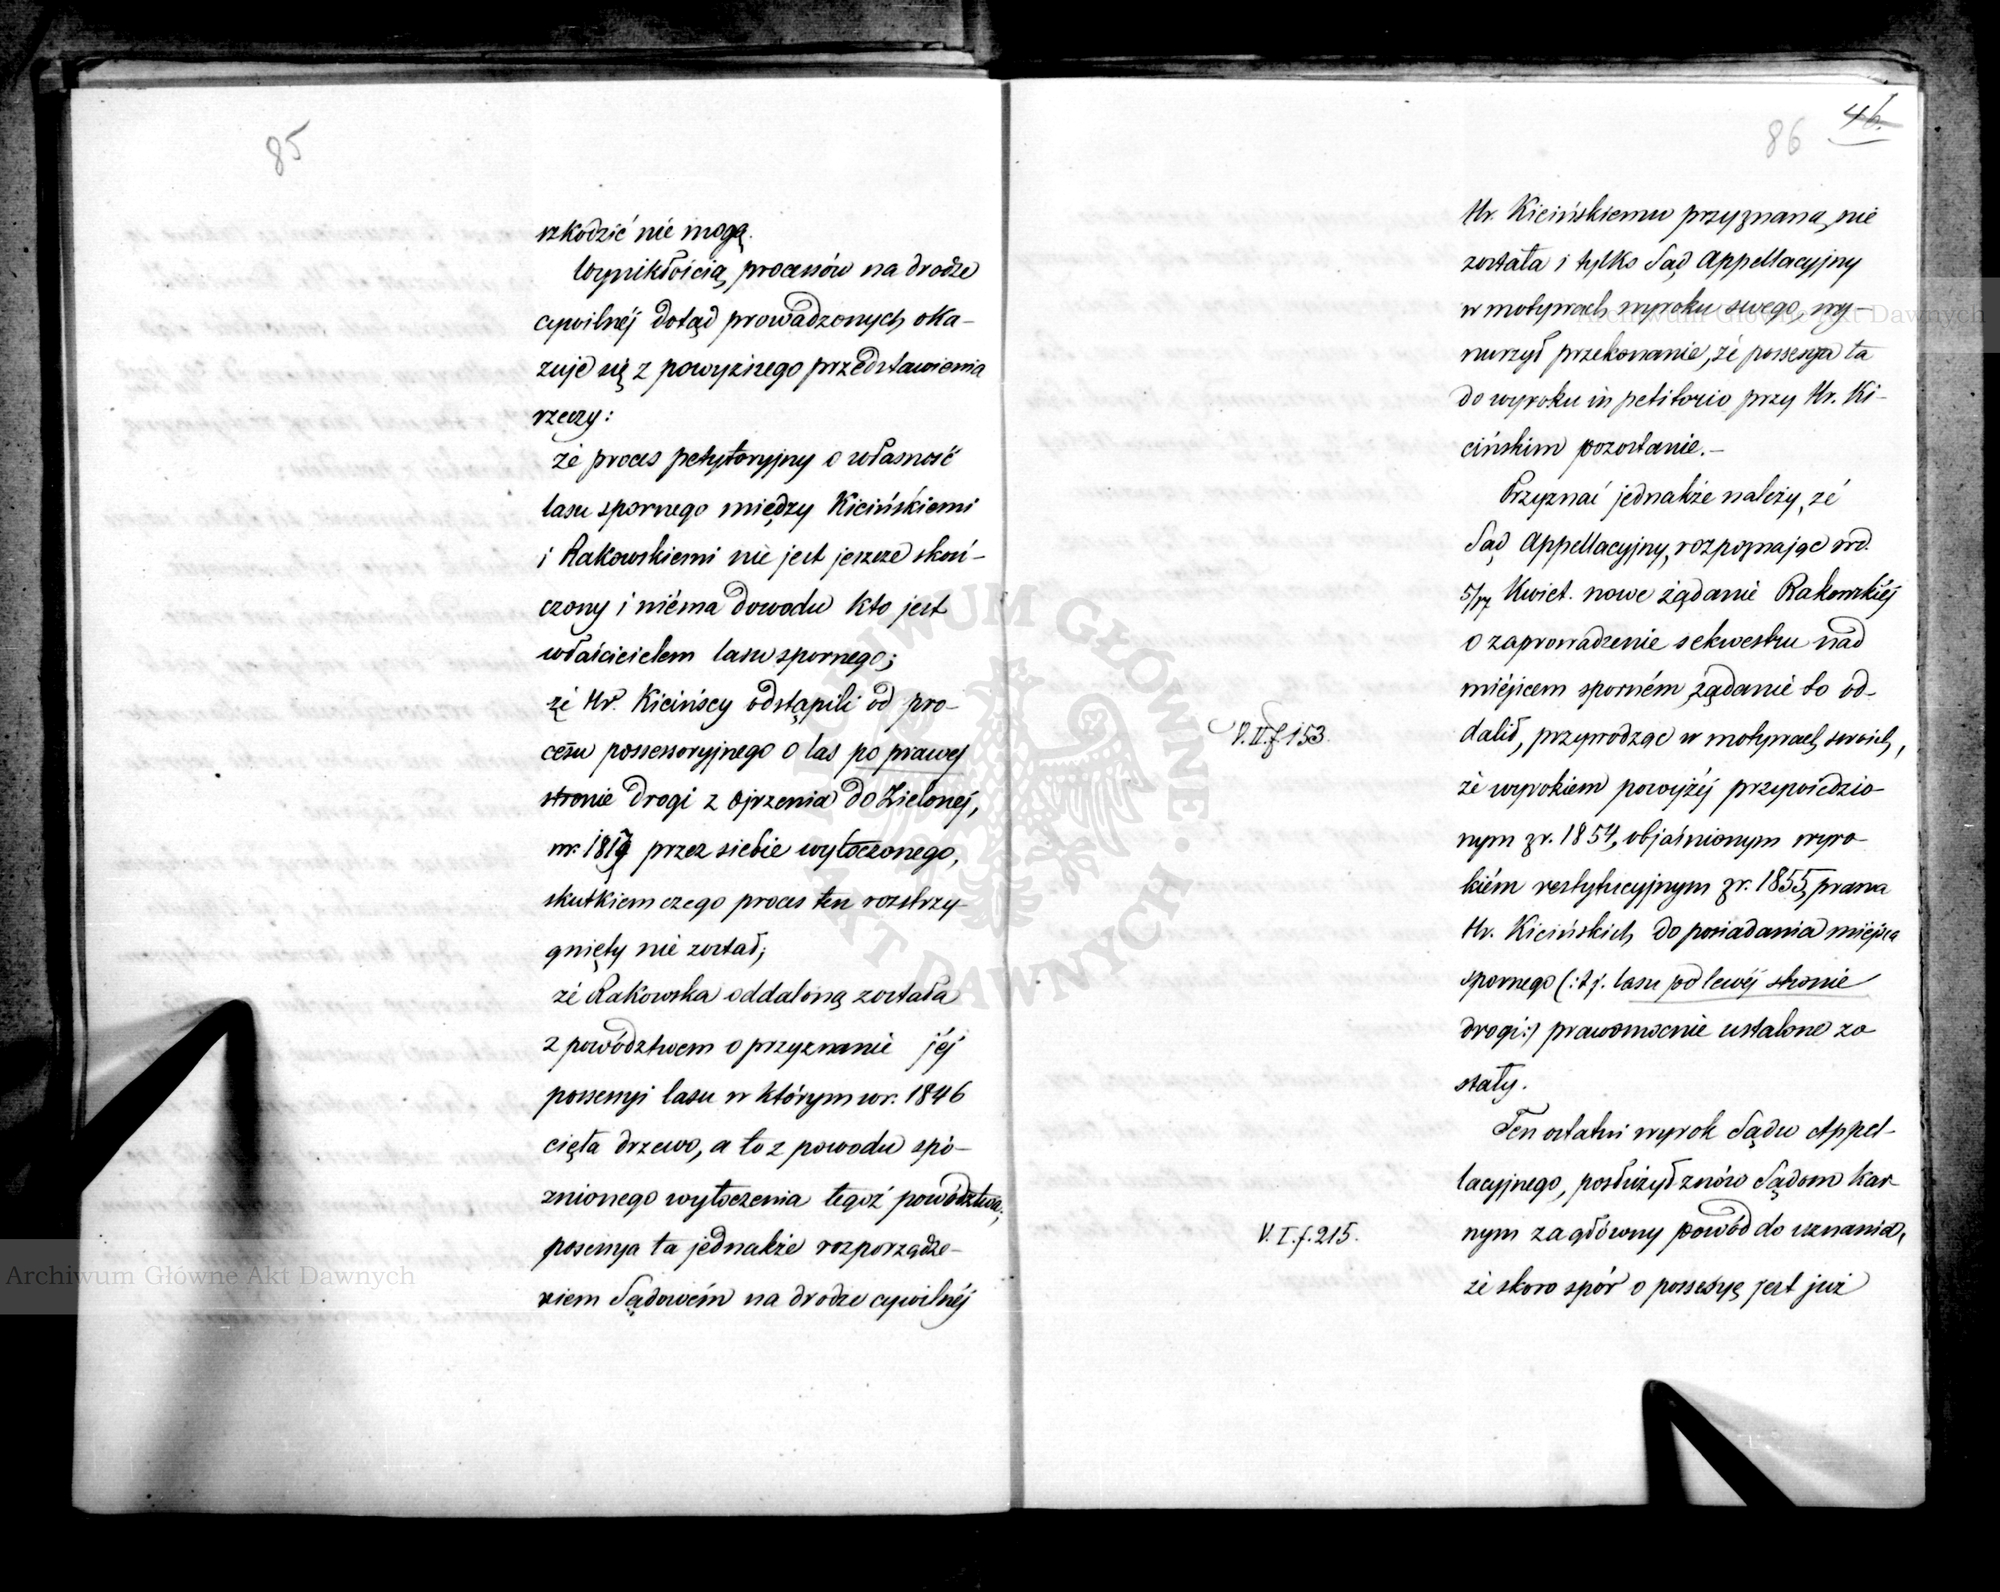 85
szkodzić nie mogą.
Wynikłością procesów na drodze
cywilnéj dotąd prowadzonych oka-
zuje się z powyższego przedstawienia
rzeczy:
że proces petytoryjny o własność
lasu spornego między Kicińskiemi
i Rakowskiemi nie jest jeszcze skoń-
czony i niéma dowodu kto jest
właścicielem lasu spornego;
że Hr. Kicińscy odstąpili od pro-
cesu possessoryjnego o las po prawej
stronie drogi z Ojrzenia do Zielonej,
w r. 1819 przez siebie wytoczonego,
skutkiem czego proces ten rozstrzy-
gnięty nie został;
że Rakowska oddaloną została
z powództwem o przyznanie jéj
possessyi lasu w którym w r. 1846
cięła drzewo, a to z powodu spó-
znionego wytoczenia tegoż powództwa;
possessya ta jednakże rozporządze-
niem Sądowém na drodze cywilnéj
86 46.
Hr. Kicińskiemu przyznaną nie
została i tylko Sąd Appellacyjny
w motywach wyroku swego, wy-
nurzył przekonanie, że possessya ta
do wyroku in petitorio przy Hr. Ki-
cińskim pozostanie.-
Przyznać jednakże należy, że
Sąd Appellacyjny, rozpoznając w d.
5/17 Kwiet. nowe żądanie Rakowskiéj
o zaprowadzenie sekwestru nad
miéjscem sporném, żądanie to od-
dalił, przywodząc w motywach swoich,
że wyrokiem powyżéj przywiedzio-
nym z r. 1854, objaśnionym wyro-
kiém restytucyjnym z r. 1855, prawa
Hr. Kicińskich do posiadania miejsca
spornego (: t j. lasu po lewéj stronie
drogi :) prawomocnie ustalone zo
stały.
V. II. f. 153.
Ten ostatni wyrok Sądu Appel-
lacyjnego, posłużył znów Sądom Kar-
nym za główny powód do uznania,
że skoro spór o possessyę jest już
V. I. f. 215.
Archiwum Główne Akt Dawnych
Archiwum Główne Akt Dawnych
ARCHIWUM GŁÓWNE · AKT DAWNYCH ·